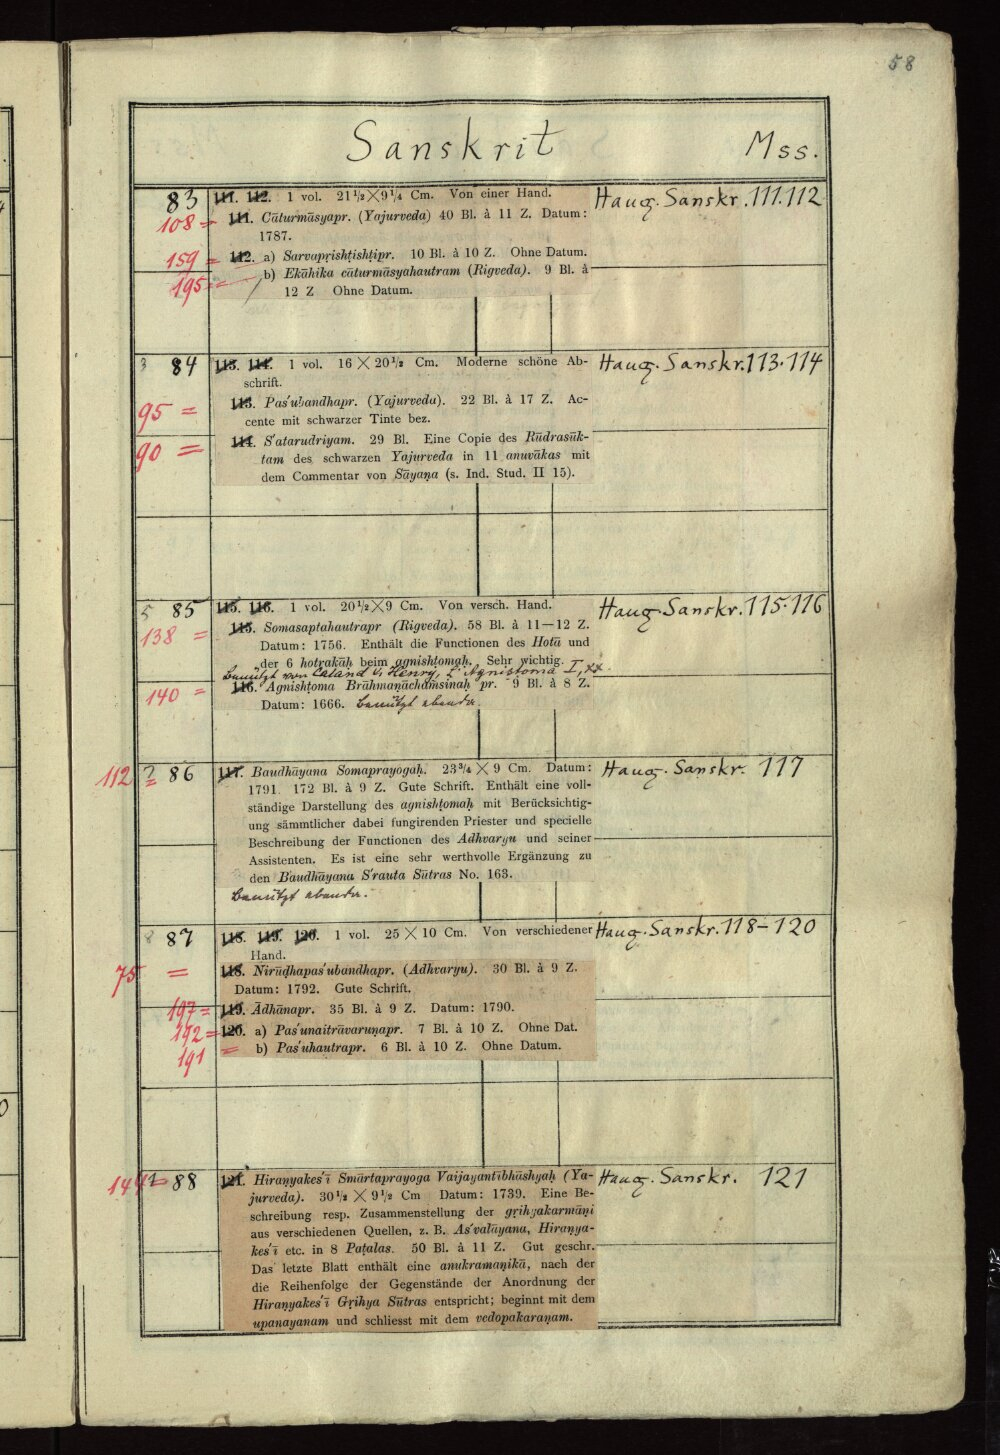 58
Sanskrit Mss.
83 111. 112. 1 vol. 21 1/2 × 9 1/4 Cm. Von einer Hand. Haug. Sanskr. 111.112
108 = 111. Cāturmāsyapr. (Yajurveda) 40 Bl. à 11 Z. Datum:
1787.
159 = 112. a) Sarvapṛishtishtipr. 10 Bl. à 10 Z. Ohne Datum.
195 = b) Ekāhika cāturmāsyahautram (Rigveda). 9 Bl. à
12 Z Ohne Datum.
3 84 113. 114. 1 vol. 16 × 20 1/2 Cm. Moderne schöne Ab- Haug. Sanskr. 113.114
schrift.
95 = 113. Paśubandhapr. (Yajurveda). 22 Bl. à 17 Z. Ac-
cente mit schwarzer Tinte bez.
90 = 114. S'atarudriyam. 29 Bl. Eine Copie des Rūdrasūk-
tam des schwarzen Yajurveda in 11 anuvākas mit
dem Commentar von Sāyaṇa (s. Ind. Stud. II 15).
5 85 115. 116. 1 vol. 20 1/2 × 9 Cm. Von versch. Hand. Haug. Sanskr. 115.116
138 = 115. Somasaptahautrapr (Rigveda). 58 Bl. à 11—12 Z.
Datum: 1756. Enthält die Functionen des Hotā und
der 6 hotrakāḥ beim agnishṭomaḥ. Sehr wichtig.
Benützt von Caland & Henry, L'Agnistoma I, xx.
140 = 116. Agnishṭoma Brāhmaṇāchamsinaḥ pr. 9 Bl. à 8 Z.
Datum: 1666. Benützt ebenda.
112 = 86 117. Baudhāyana Somaprayogaḥ. 23 3/4 × 9 Cm. Datum: Haug. Sanskr. 117
1791. 172 Bl. à 9 Z. Gute Schrift. Enthält eine voll-
ständige Darstellung des agnishṭomaḥ mit Berücksichtig-
ung sämmtlicher dabei fungirenden Priester und specielle
Beschreibung der Functionen des Adhvaryu und seiner
Assistenten. Es ist eine sehr werthvolle Ergänzung zu
den Baudhāyana S'rauta Sūtras No. 163.
Benützt ebenda.
8 87 118. 119. 120. 1 vol. 25 × 10 Cm. Von verschiedener Haug. Sanskr. 118–120
Hand.
75 = 118. Nirūḍhapas'ubandhapr. (Adhvaryu). 30 Bl. à 9 Z.
Datum: 1792. Gute Schrift.
197 = 119. Ādhānapr. 35 Bl. à 9 Z. Datum: 1790.
192 = 120. a) Pas'unaitrāvaruṇapr. 7 Bl. à 10 Z. Ohne Dat.
191 = b) Pas'uhautrapr. 6 Bl. à 10 Z. Ohne Datum.
88 121. Hiraṇyakes'i Smārtaprayoga Vaijayantībhāshyaḥ (Ya- Haug. Sanskr. 121
jurveda). 30 1/2 × 9 1/2 Cm Datum: 1739. Eine Be-
schreibung resp. Zusammenstellung der gṛihyakarmāṇi
aus verschiedenen Quellen, z. B. As'valāyana, Hiraṇya-
kes'ī etc. in 8 Paṭalas. 50 Bl. à 11 Z. Gut geschr.
Das letzte Blatt enthält eine anukramaṇikā, nach der
die Reihenfolge der Gegenstände der Anordnung der
Hiraṇyakes'ī Gṛihya Sūtras entspricht; beginnt mit dem
upanayanam und schliesst mit dem vedopakaraṇam.